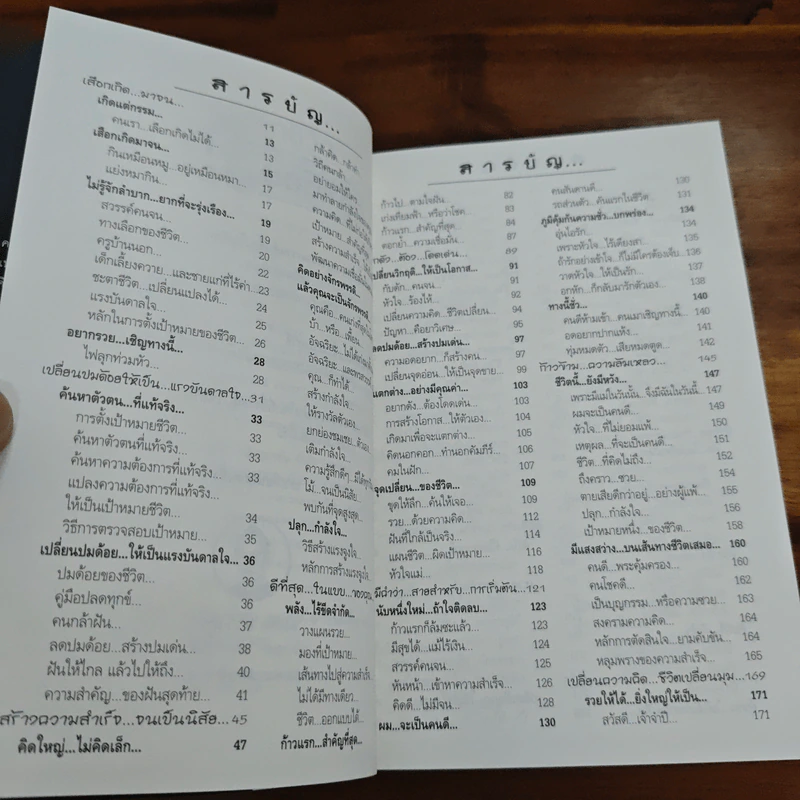 สารบัญ...
เสือกเกิด...มาจน... 11
เกิดแต่กรรม... 13
คนเรา...เลือกเกิดไม่ได้... 13
เสือกเกิดมาจน... 15
กินเหมือนหมู...อยู่เหมือนหมา... 17
แย่งหมากิน... 17
ไม่รู้จักลำบาก...ยากที่จะรุ่งเรือง... 19
สวรรค์คนจน... 19
ทางเลือกของชีวิต... 20
ครูบ้านนอก... 21
เด็กเลี้ยงควาย...และชายแก่ที่ไร้ค่า... 23
ชะตาชีวิต...เปลี่ยนแปลงได้... 24
แรงบันดาลใจ... 25
หลักในการตั้งเป้าหมายของชีวิต... 26
อยากรวย...เชิญทางนี้... 28
ไฟลุกท่วมหัว... 28
เปลี่ยนปมด้อยให้เป็น...แรงบันดาลใจ... 31
ค้นหาตัวตน...ที่แท้จริง... 33
การตั้งเป้าหมายชีวิต... 33
ค้นหาตัวตนที่แท้จริง... 33
ค้นหาความต้องการที่แท้จริง... 33
แปลงความต้องการที่แท้จริง...
ให้เป็นเป้าหมายชีวิต... 34
วิธีการตรวจสอบเป้าหมาย... 35
เปลี่ยนปมด้อย...ให้เป็นแรงบันดาลใจ... 36
ปมด้อยของชีวิต... 36
คู่มือปลดทุกข์... 36
คนกล้าฝัน... 37
ลดปมด้อย...สร้างปมเด่น... 38
ฝันให้ไกล แล้วไปให้ถึง... 40
ความสำคัญ...ของฝันสุดท้าย... 41
สร้างความสำเร็จ...จนเป็นนิสัย... 45
คิดใหญ่...ไม่คิดเล็ก... 47
กล้าคิด...กล้า
วิถีคนกล้า
อย่ายอมให้ใคร
มาทำลายกำลังใจ
ความคิด...ที่ไม่
เป้าหมาย...สำคัญ
สร้างความสำเร็จ
พัฒนาความเชื่อมั่น
คิดอย่างจักรพรรดิ...
แล้วคุณจะเป็นจักรพรรดิ
คุณคือ...คนเก่งที่
บ้า...หรือ...เพี้ยน
อัจฉริยะ...ไม่ได้
อัจฉริยะ...และ
คุณ...ก็ทำได้
สร้างกำลังใจ
ให้รางวัลตัวเอง
ยกย่องชมเชย...ตัวเอง
เติมกำลังใจ
ความรู้สึกดีๆ...มีให้
โม้...จนเป็นนิสัย
พบกันที่จุดสูงสุด
ปลุก...กำลังใจ...
วิธีสร้างแรงจูงใจ
หลักการสร้างแรงจูงใจ
ดีที่สุด...ในแบบ...ของคุณ
พลัง...ไร้ขีดจำกัด...
วางแผนรวย...
มองที่เป้าหมาย...
เส้นทางไปสู่ความสำเร็จ
ไม่ได้มีทางเดียว...
ชีวิต...ออกแบบได้...
ก้าวแรก...สำคัญที่สุด...
สารบัญ...
ก้าวไป...ตามใจฝัน 82
เก่งเทียมฟ้า...หรือว่าโชค... 83
ก้าวแรก...สำคัญที่สุด... 84
ตอกย้ำ...ความเชื่อมั่น... 87
...ต้อง...โดดเด่น... 89
เปลี่ยนวิกฤติ...ให้เป็นโอกาส... 91
กับดัก...คนจน... 91
หัวใจ...ร้องไห้... 92
เปลี่ยนความคิด...ชีวิตเปลี่ยน... 94
ปัญหา...คือยาวิเศษ... 95
ลดปมด้อย...สร้างปมเด่น... 97
ความอดอยาก...ก็สร้างคน... 97
เปลี่ยนจุดอ่อน...ให้เป็นจุดขาย... 99
แตกต่าง...อย่างมีคุณค่า... 103
อยากดัง...ต้องโดดเด่น... 103
การสร้างโอกาส...ให้ตัวเอง... 103
เกิดมาเพื่อจะแตกต่าง... 104
คิดนอกคอก...ทำนอกคัมภีร์... 106
คมในฝัก... 107
จุดเปลี่ยน...ของชีวิต... 109
ขุดให้ลึก...ค้นให้เจอ... 109
รวย...ด้วยความคิด... 110
ฝันที่ใกล้เป็นจริง... 112
แผนชีวิต...ผิดเป้าหมาย... 114
หัวใจแม่... 118
มีดีกว่า...สายสำหรับ...การเริ่มต้น... 121
นับหนึ่งใหม่...ถ้าใจคิดลบ... 123
ก้าวแรกก็ล้มซะแล้ว... 123
มีสุขได้...แม้ไร้เงิน... 124
สวรรค์คนจน... 125
หันหน้า...เข้าหาความสำเร็จ... 126
คิดดี...ไม่มีจน... 128
ผม...จะเป็นคนดี... 130
คนสันดานดี... 130
รถส่วนตัว...คันแรกในชีวิต 131
ภูมิคุ้มกันความชั่ว...บกพร่อง... 134
อุ่นไอรัก... 134
เพราะหัวใจ...ไร้เดียงสา... 135
ถ้ารักอย่างเข้าใจ...ก็ไม่มีใครต้องเจ็บ... 136
วาดหัวใจ...ให้เป็นรัก... 137
อกหัก...ก็กลับมารักตัวเอง... 138
ทางนี้ชั่ว... 140
คนดีห้ามเข้า...คนเมาเชิญทางนี้... 140
อดอยากปากแห้ง... 141
ทุ่มหมดตัว...เสียหมดตูด... 142
ก้าวข้าม...ความล้มเหลว... 145
ชีวิตนี้...ยังมีหวัง... 147
เพราะมีแม่ในวันนั้น...จึงมีฉันในวันนี้... 147
ผมจะเป็นคนดี... 149
หัวใจ...ที่ไม่ยอมแพ้... 150
เหตุผล...ที่จะเป็นคนดี... 151
ชีวิต...ที่คิดไม่ถึง... 152
ถึงคราว...ซวย... 154
ตายเสียดีกว่าอยู่...อย่างผู้แพ้... 155
ปลุก...กำลังใจ... 156
เป้าหมายหนึ่ง...ของชีวิต... 158
มีแสงสว่าง...บนเส้นทางชีวิตเสมอ... 160
คนดี...พระคุ้มครอง... 160
คนโชคดี... 161
เป็นบุญกรรม...หรือความซวย... 163
สงครามความคิด... 164
หลักการตัดสินใจ...ยามคับขัน... 164
หลุมพรางของความสำเร็จ... 165
เปลี่ยนความคิด...ชีวิตเปลี่ยนมุม... 169
รวยให้ได้...ยิ่งใหญ่ให้เป็น... 171
สวัสดี...เจ้าจำปี... 171